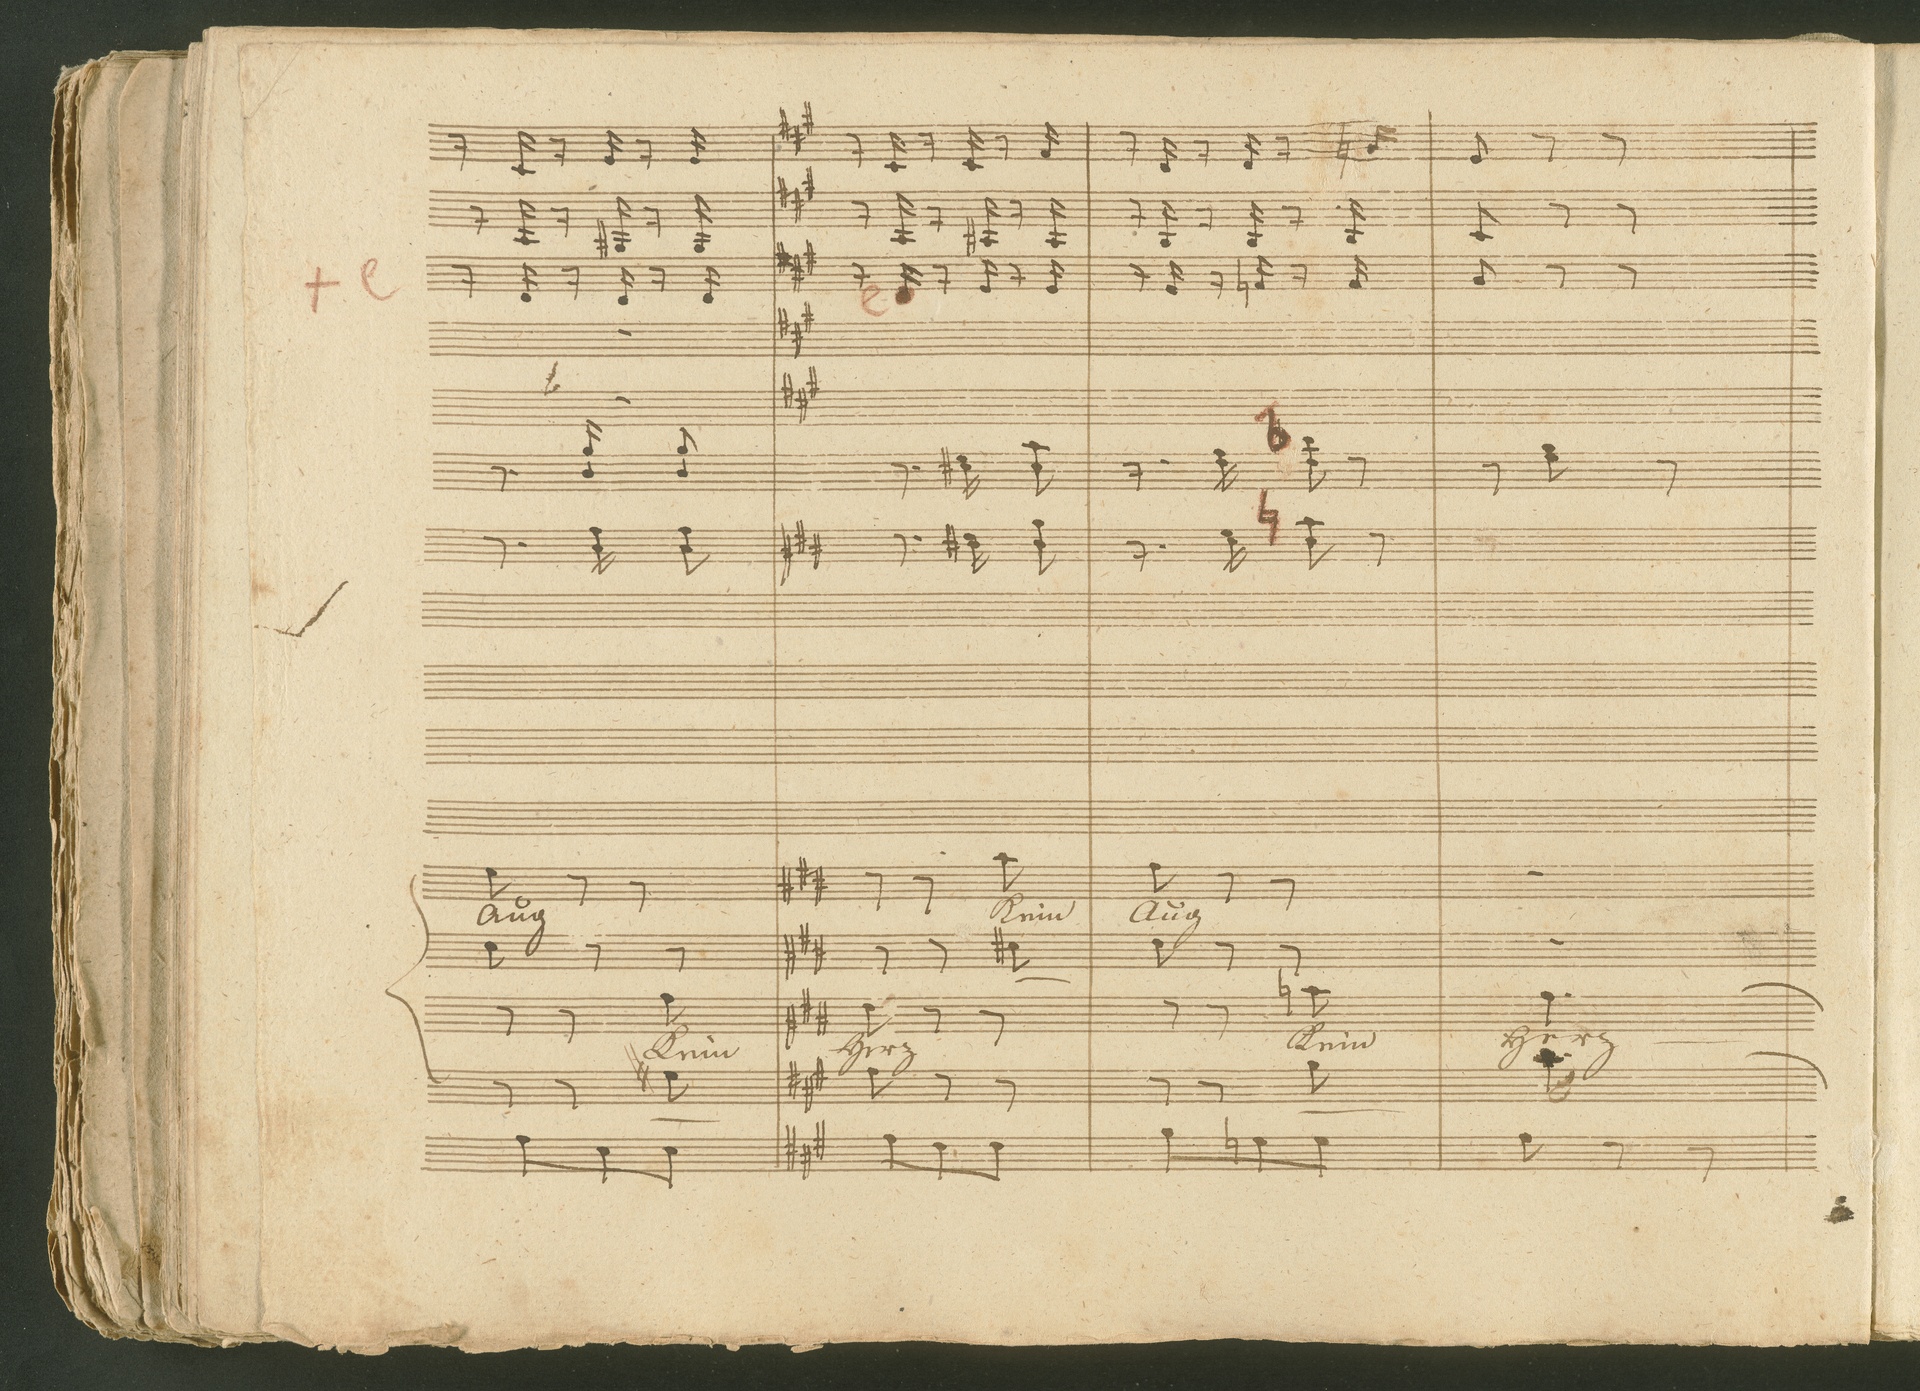 + e
e
Aug Kein Aug
Kein Herz Kein Herz